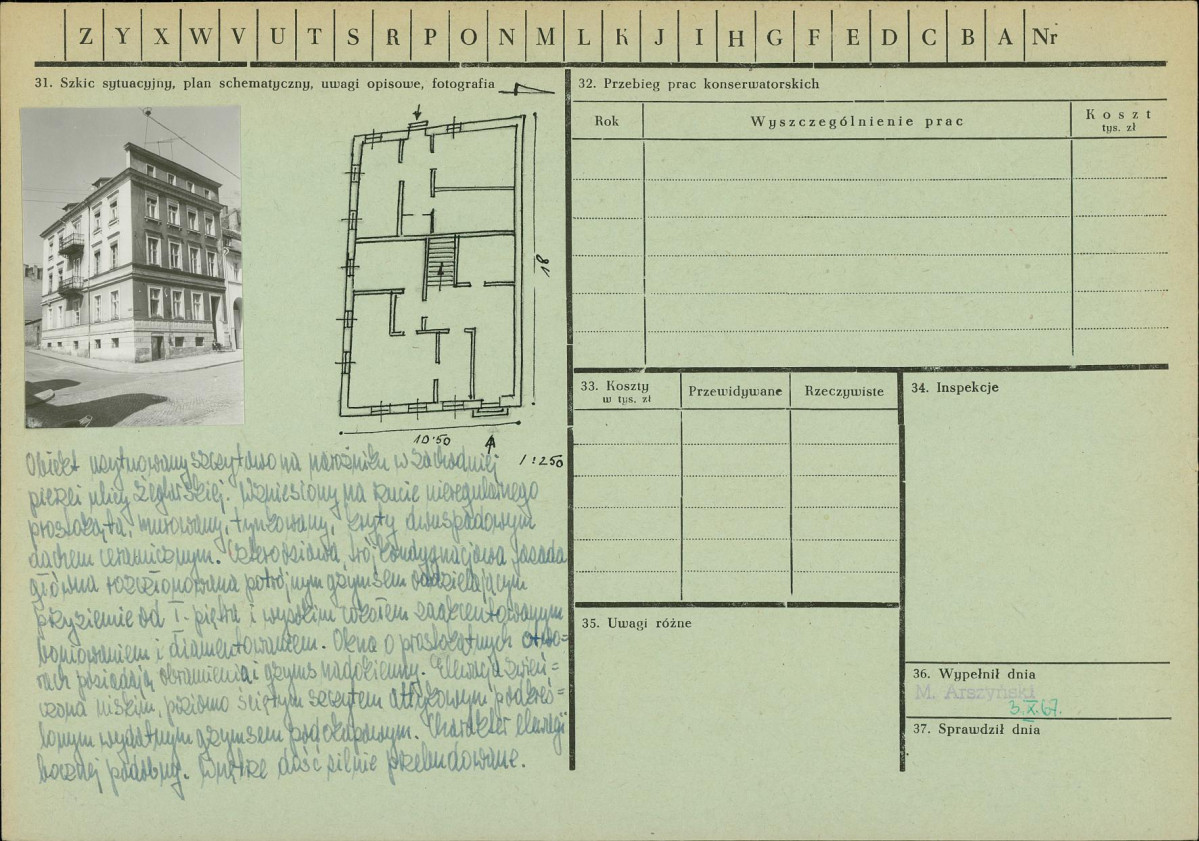 Z Y X W V U T S R P O N M L K J I H G F E D C B A Nr
31. Szkic sytuacyjny, plan schematyczny, uwagi opisowe, fotografia
18
10·50
1:250
Obiekt usytuowany szczytowo na narożniku w zachodniej
pierzei ulicy Żeglarskiej. Wzniesiony na rzucie nieregularnego
prostokąta, murowany, tynkowany, kryty dwuspadowym
dachem ceramicznym. Czteroosiowa, trójkondygnacjowa fasada
główna rozczłonkowana potrójnym gzymsem oddzielającym
przyziemie od I. piętra i wysokim cokołem zaakcentowanym
boniowaniem i diamentowaniem. Okna o prostokątnych otwo=
rach posiadają obramienia i gzyms nadokienny. Elewacja zwień=
czona niskim, poziomo ściętym szczytem attykowym podkreś=
lonym wydatnym gzymsem podokapowym. Charakter elewacji
bocznej podobny. Wnętrze dość silnie przebudowane.
32. Przebieg prac konserwatorskich
Rok Wyszczególnienie prac Koszt
tys. zł
33. Koszty Przewidywane Rzeczywiste
w tys. zł
34. Inspekcje
35. Uwagi różne
36. Wypełnił dnia
M. Arszyński
3.X.67.
37. Sprawdził dnia